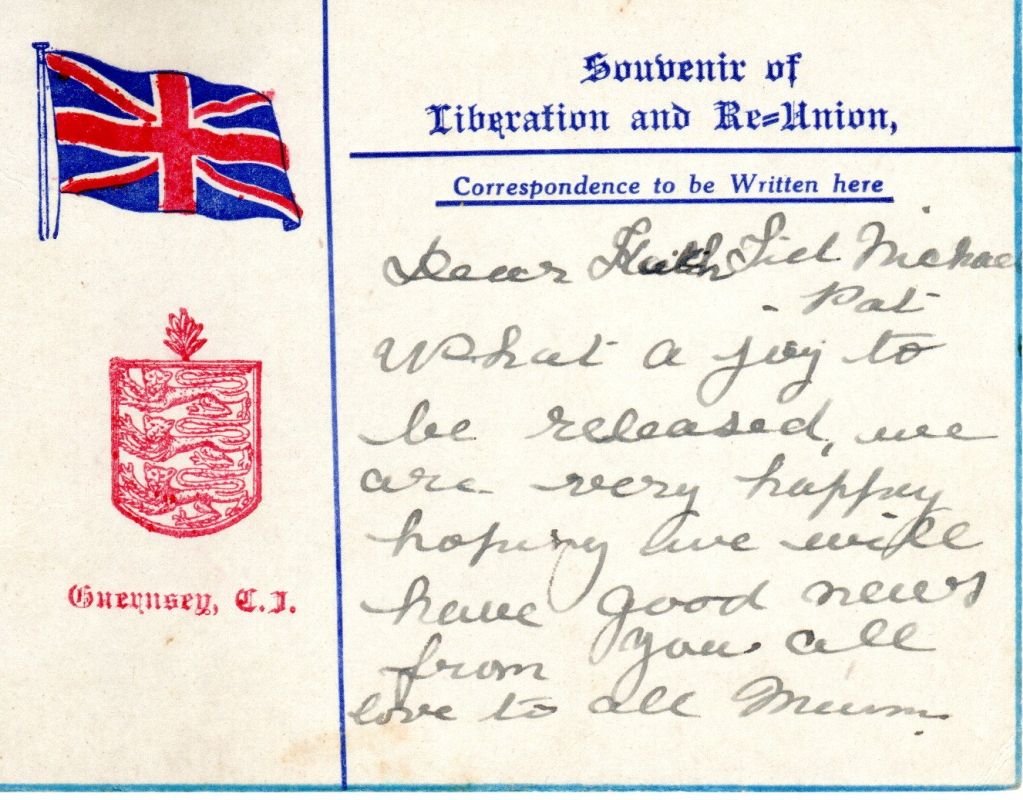 Souvenir of
Liberation and Re=Union,
Correspondence to be Written here
Dear Sid Michael
- Pat
What a joy to
be released, we
are very happy
hoping we will
have good news
from you all
love to all Mum.
Guernsey, C.I.